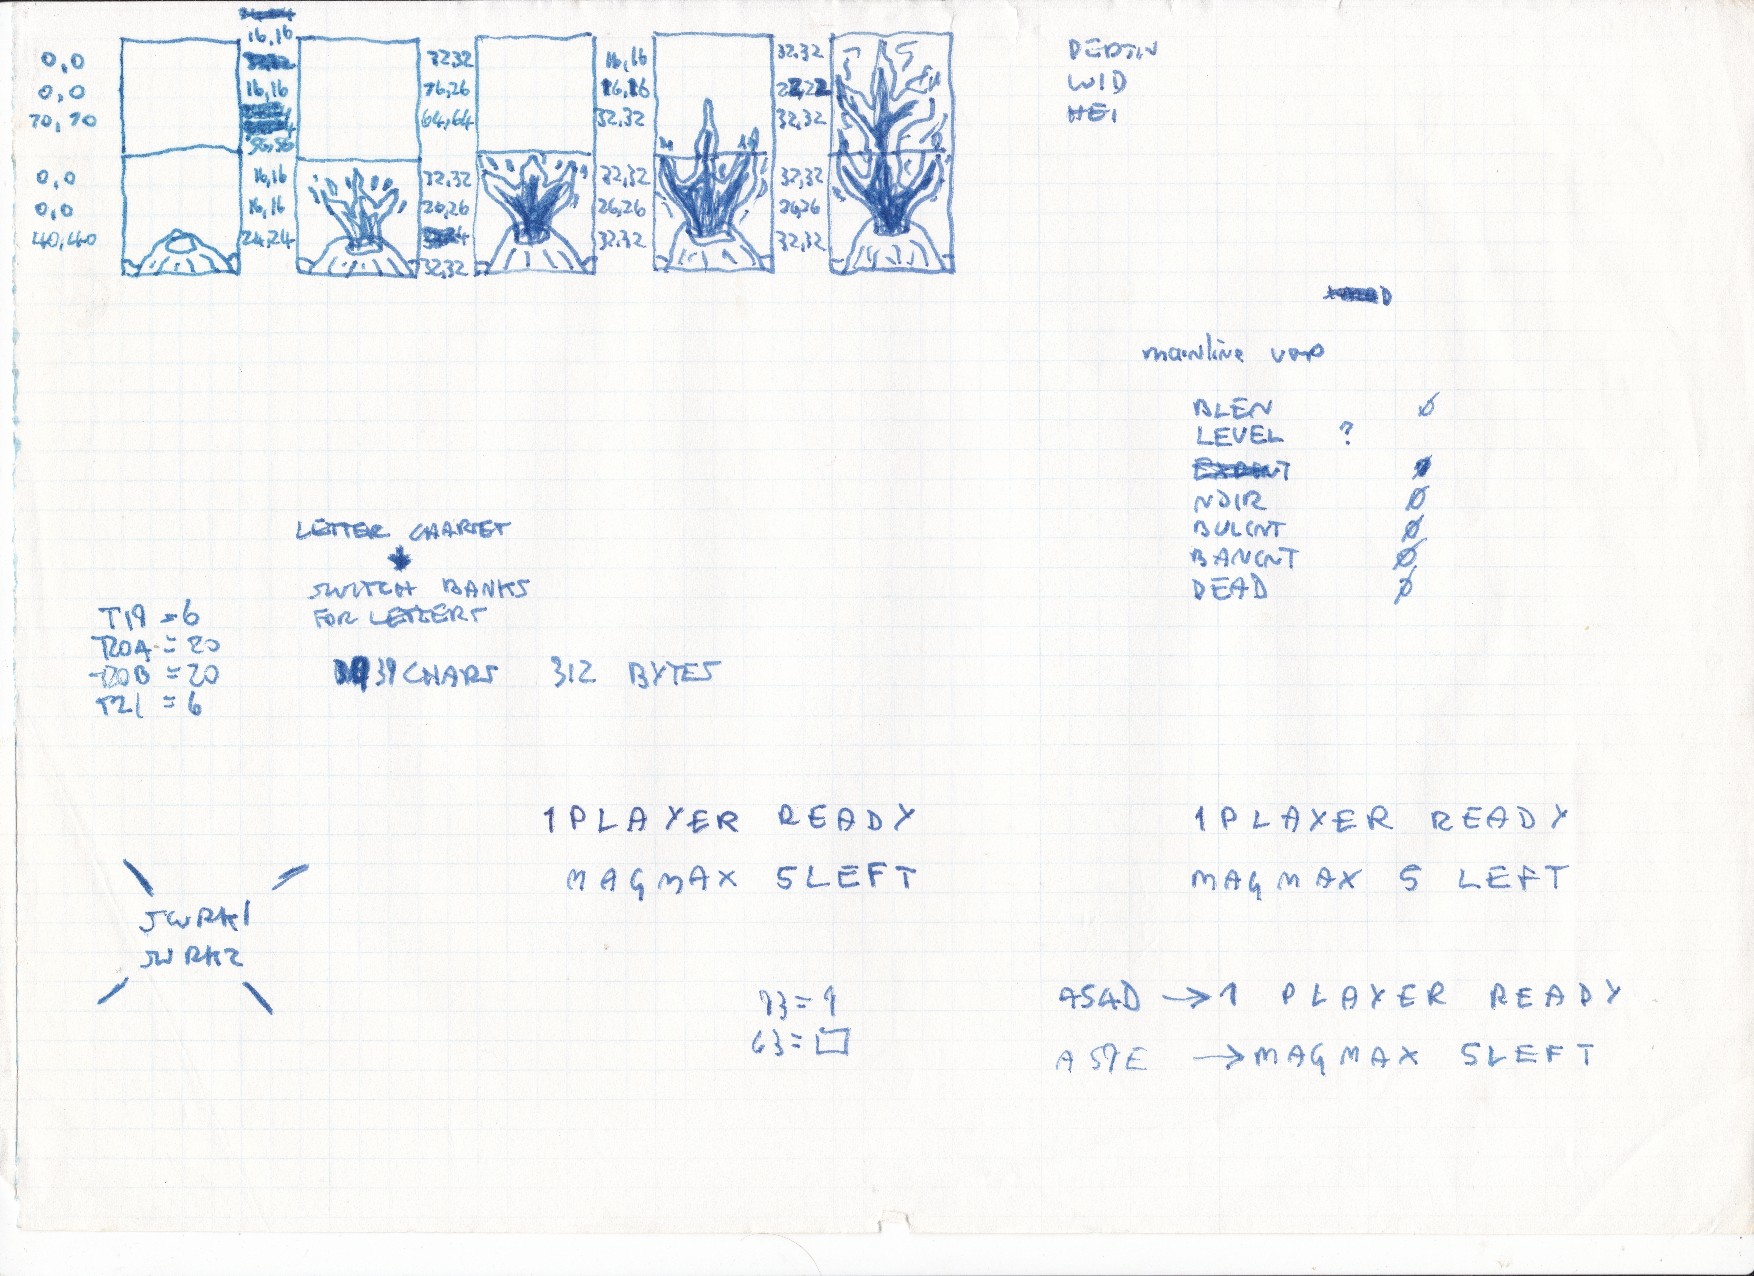 16,16
0,0
0,0
70,70
16,16
56,56
32,32
76,26
64,64
16,16
16,16
32,32
32,32
22,22
32,32
0,0
0,0
40,40
16,16
16,16
24,24
32,32
26,26
32,32
32,32
26,26
32,32
32,32
26,26
32,32
WID
HEI
mainline vap
BLEN Ø
LEVEL ?
NDIR Ø
BULCNT Ø
BANCNT Ø
DEAD Ø
LETTER CHARSET
SWITCH BANKS
FOR LETTERS
T19 = 6
T20A = 20
T20B = 20
T21 = 6
39 CHARS 312 BYTES
1 PLAYER READY
MAGMAX 5 LEFT
1 PLAYER READY
MAGMAX 5 LEFT
SWRK1
SWRK2
73 = 1
63 = □
A54D → 1 PLAYER READY
A57E → MAGMAX 5 LEFT